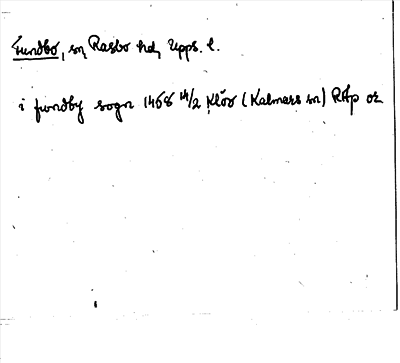 Funbo, sn, Rasbo hd, Upps. l.
i fwndby sogn 1468 14/2 Klöv (Kalmars sn) RAp or